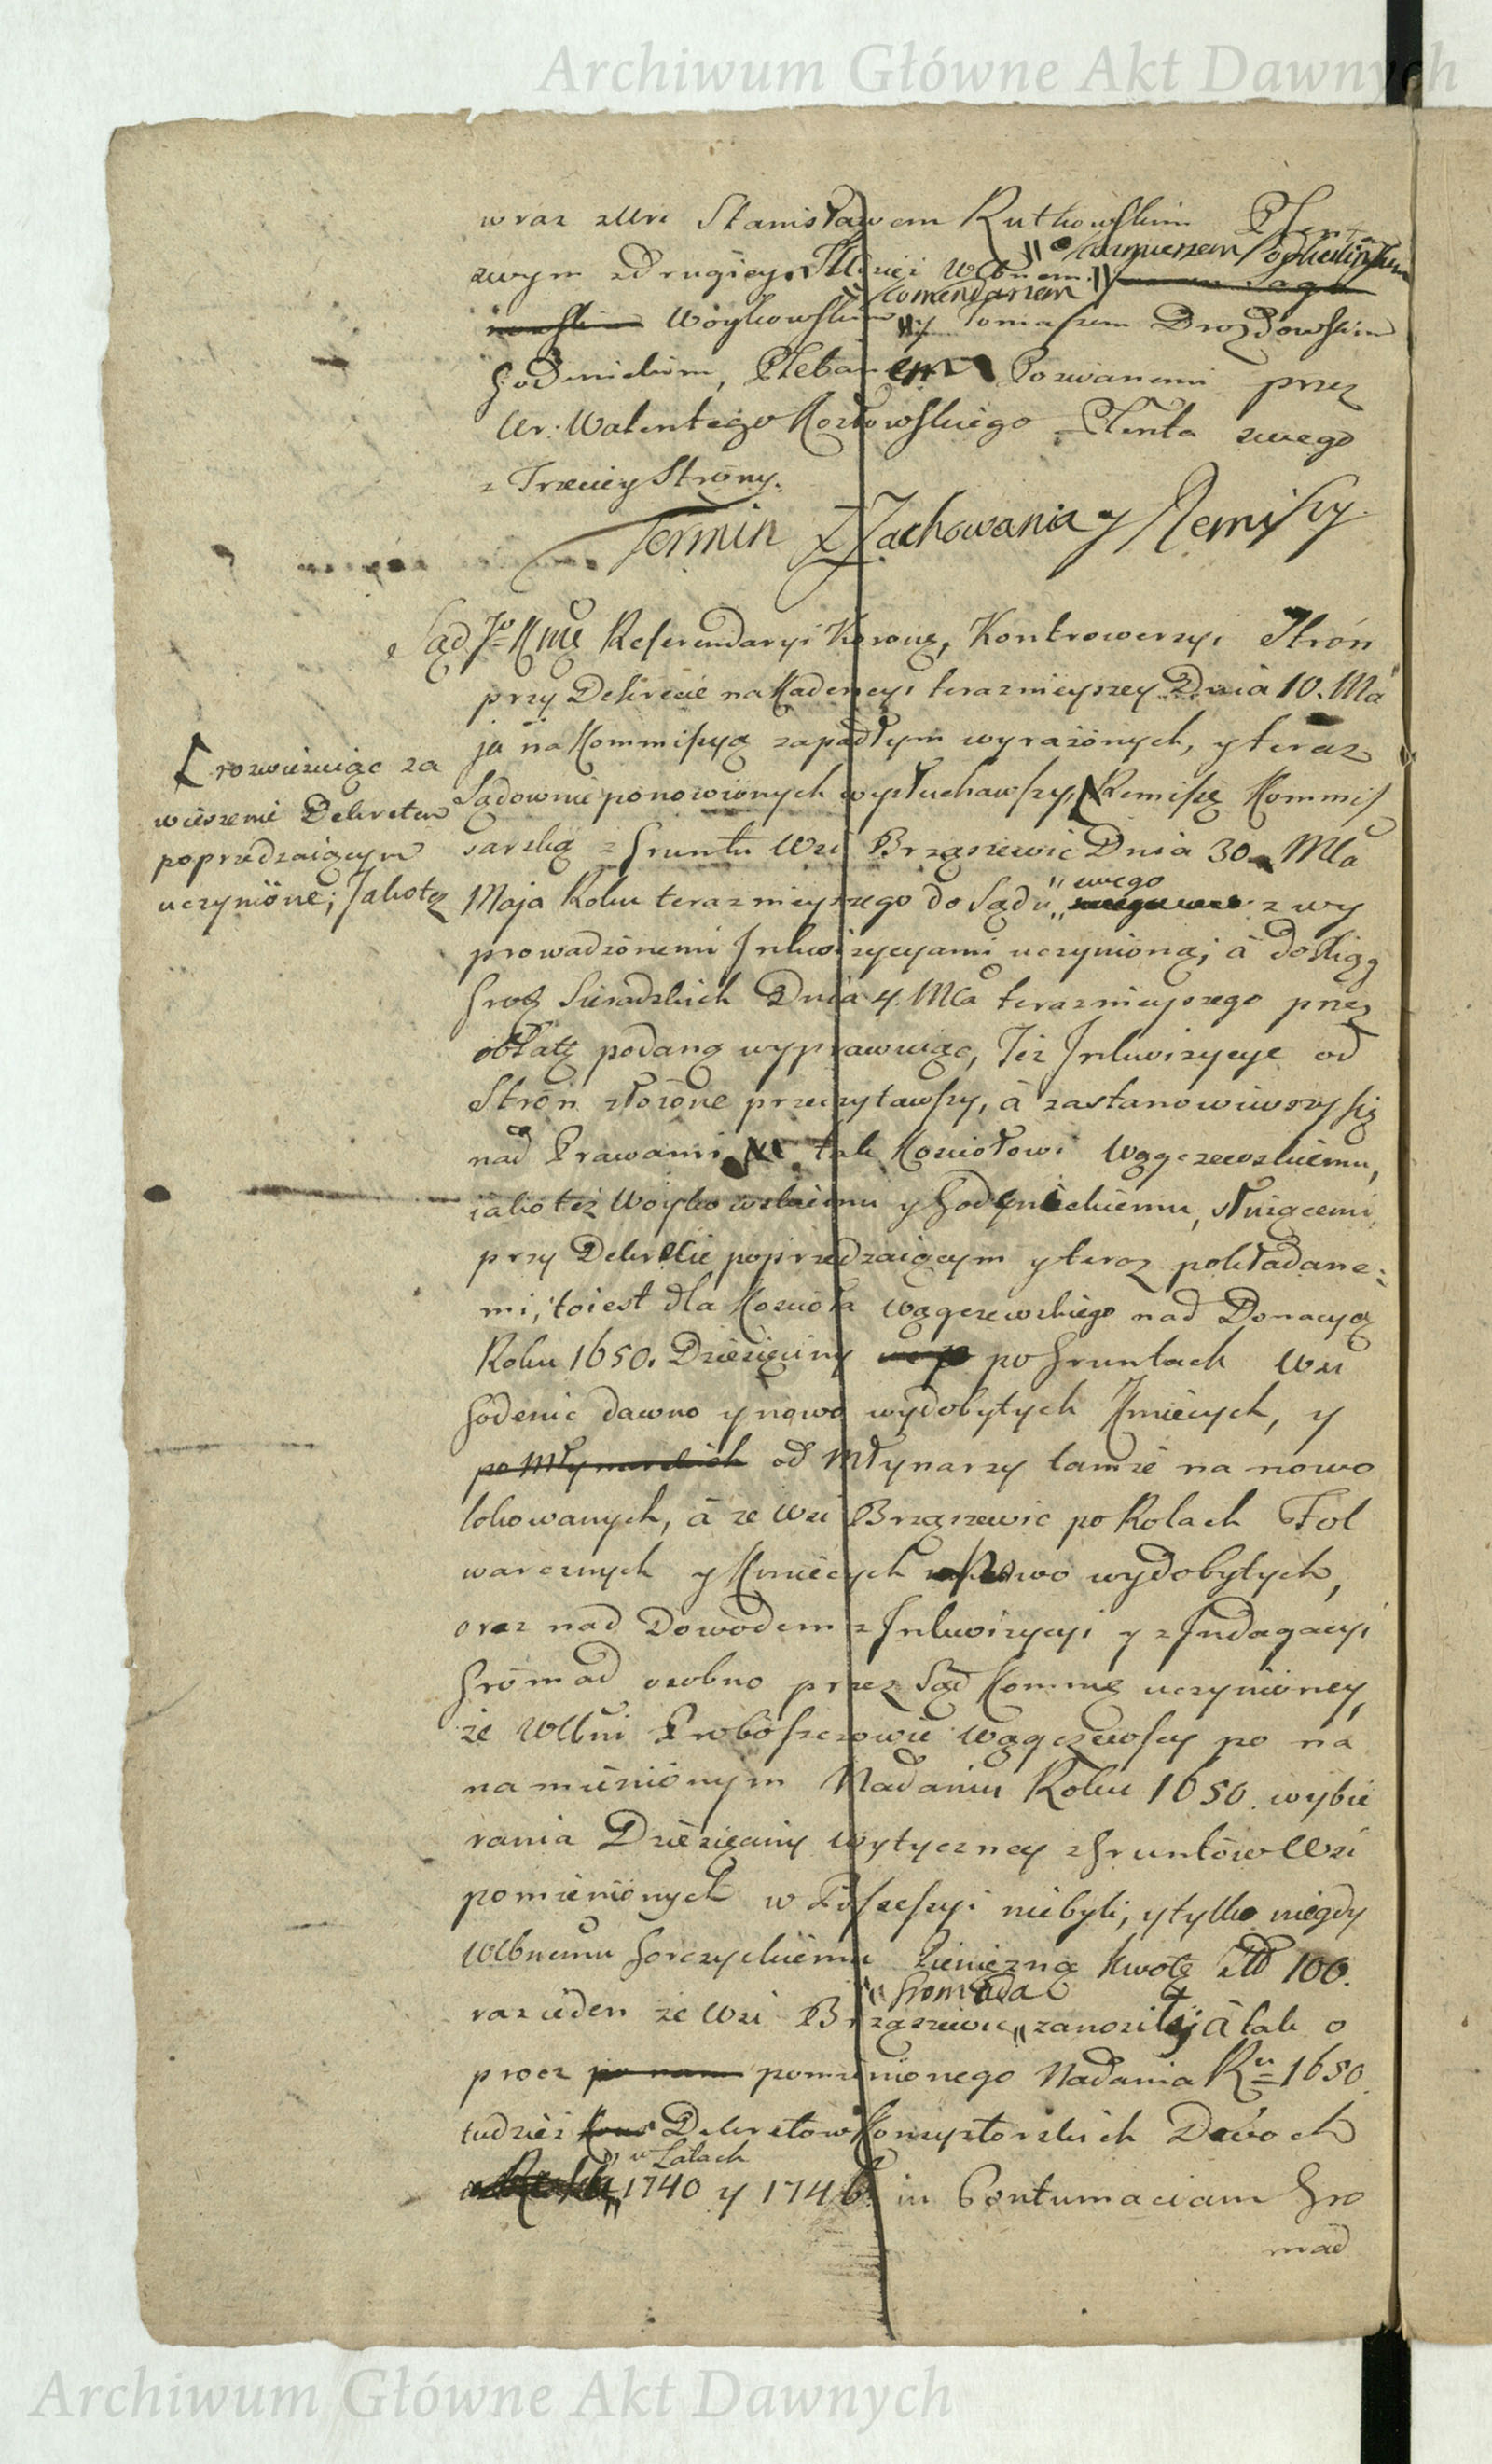 Archiwum Główne Akt Dawnych
wraz z Ur. Stanisławem Rutkowskim Plenta
zwym z Drugiey, tudzież Wlbnem
Komendarzem
Woykowskim y Tomaszem Drozdowskim
Godynickim, Plebanem Pozwanemi przez
Ur. Walentego Kozłowskiego Plenta swego
z Trzeciey Strony.
Termin Z Zachowania y Remissy.
Sąd Jo Kmci Referendaryi Koronę, Kontrowersyi Strón
przy Dekrecie na Kadencyi terazniejszey Dnia 10. Mca
ja na Kommissyą zapadłym wyrażónych, y teraz
Sądownie ponowiónych wysłuchawszy, Remissę Kommis
sarską z Gruntu Wsi Brząszewic Dnia 30. Mca
Maja Roku terazniejszego do Sądu swego z wy
prowadzónemi Inkwizycyami uczynioną; à do Xiąg
Grod Sieradzkich Dnia 4. Mca teraznieyszego przez
oblatę podaną wyprawuiąc, Też Inkwizycye od
Strón złożóne przeczytawszy, à zastanowiwszy się
nad Prawami tak Kościołowi Wągczewskiemu,
iako też Woykowskiemu y Godynickiemu, służącemi
przy Dekrecie poprzedzaiącym y teraz pokładane:
mi, to iest dla Kościoła Wągczewskiego nad Donacyą
Roku 1650. Dziesięciny po Gruntach Wsi
Godenic dawno y nowo wydobytych Kmiecych, y
po Młynarskich od Młynarzy tamże na nowo
lokowanych, à ze Wsi Brząszewic po Rolach Fol
warcznych y Kmiecych nowo wydobytych,
oraz nad Dowodem z Inkwizycyi y z Indagacyi
Gromad osobno przez Sąd Kommę uczynióney,
że Wlbni Proboszczowie Wągczewscy po na
namieniónym Nadaniu Roku 1650. wybie
rania Dziesięciny wytyczney z Gruntów Wsi
pomieniónych w Possessyi niebyli, y tylko niegdy
Wlbnemu Gorczyckiemu Pieniężną kwotę Złł 100.
Gromada
raz ieden ze Wsi Brząszewic zanosiła; à tak o
procz po nam pomienionego Nadania Ru 1650.
tudzież Kons Dekretów Konsystorskich Dwóch
w Latach
1740 y 1746. in Contumaciam Gro
mad
rozwiezuiąc za
wieszenie Dekretem
poprzedzaiącym
uczynióne; Jakoteż
Archiwum Główne Akt Dawnych